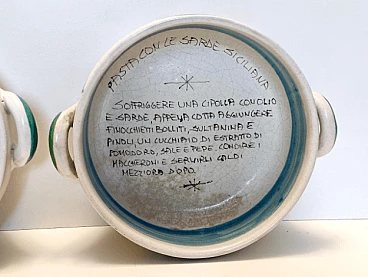 PASTA CON LE SARDE SICILIANA
SOFFRIGGERE UNA CIPOLLA CON OLIO
E SARDE, APPENA COTTA AGGIUNGERE
FINOCCHIETTI BOLLITI, SULTANINA E
PINOLI, UN CUCCHIAIO DI ESTRATTO DI
POMODORO, SALE E PEPE. CONDIRE I
MACCHERONI E SERVIRLI CALDI
MEZZ'ORA DOPO.